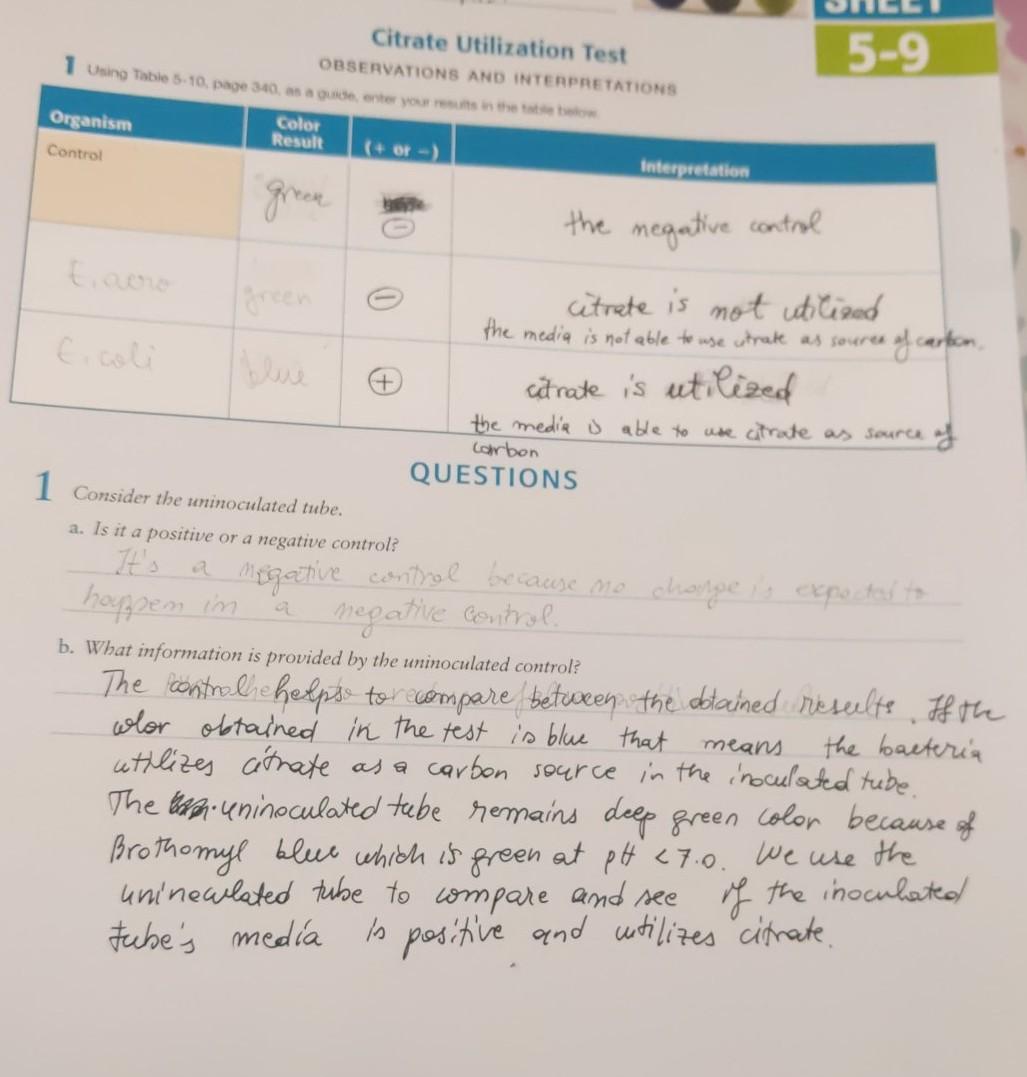 SHEET
5-9
Citrate Utilization Test
OBSERVATIONS AND INTERPRETATIONS
1 Using Table 5-10, page 340, as a guide, enter your results in the table below.
Organism Color Result (+ or -) Interpretation
Control green - the negative control
E. aero green - citrate is not utilized
the media is not able to use citrate as source of carbon.
E. coli blue + citrate is utilized
the media is able to use citrate as source of
carbon
QUESTIONS
1 Consider the uninoculated tube.
a. Is it a positive or a negative control?
It's a negative control because no change is expected to
happen in a negative control.
b. What information is provided by the uninoculated control?
The helps to compare between the obtained results. If the
color obtained in the test is blue that means the bacteria
utilizes citrate as a carbon source in the inoculated tube.
The uninoculated tube remains deep green color because of
Brothomyl blue which is green at pH <7.0. We use the
uninoculated tube to compare and see if the inoculated
tube's media is positive and utilizes citrate.